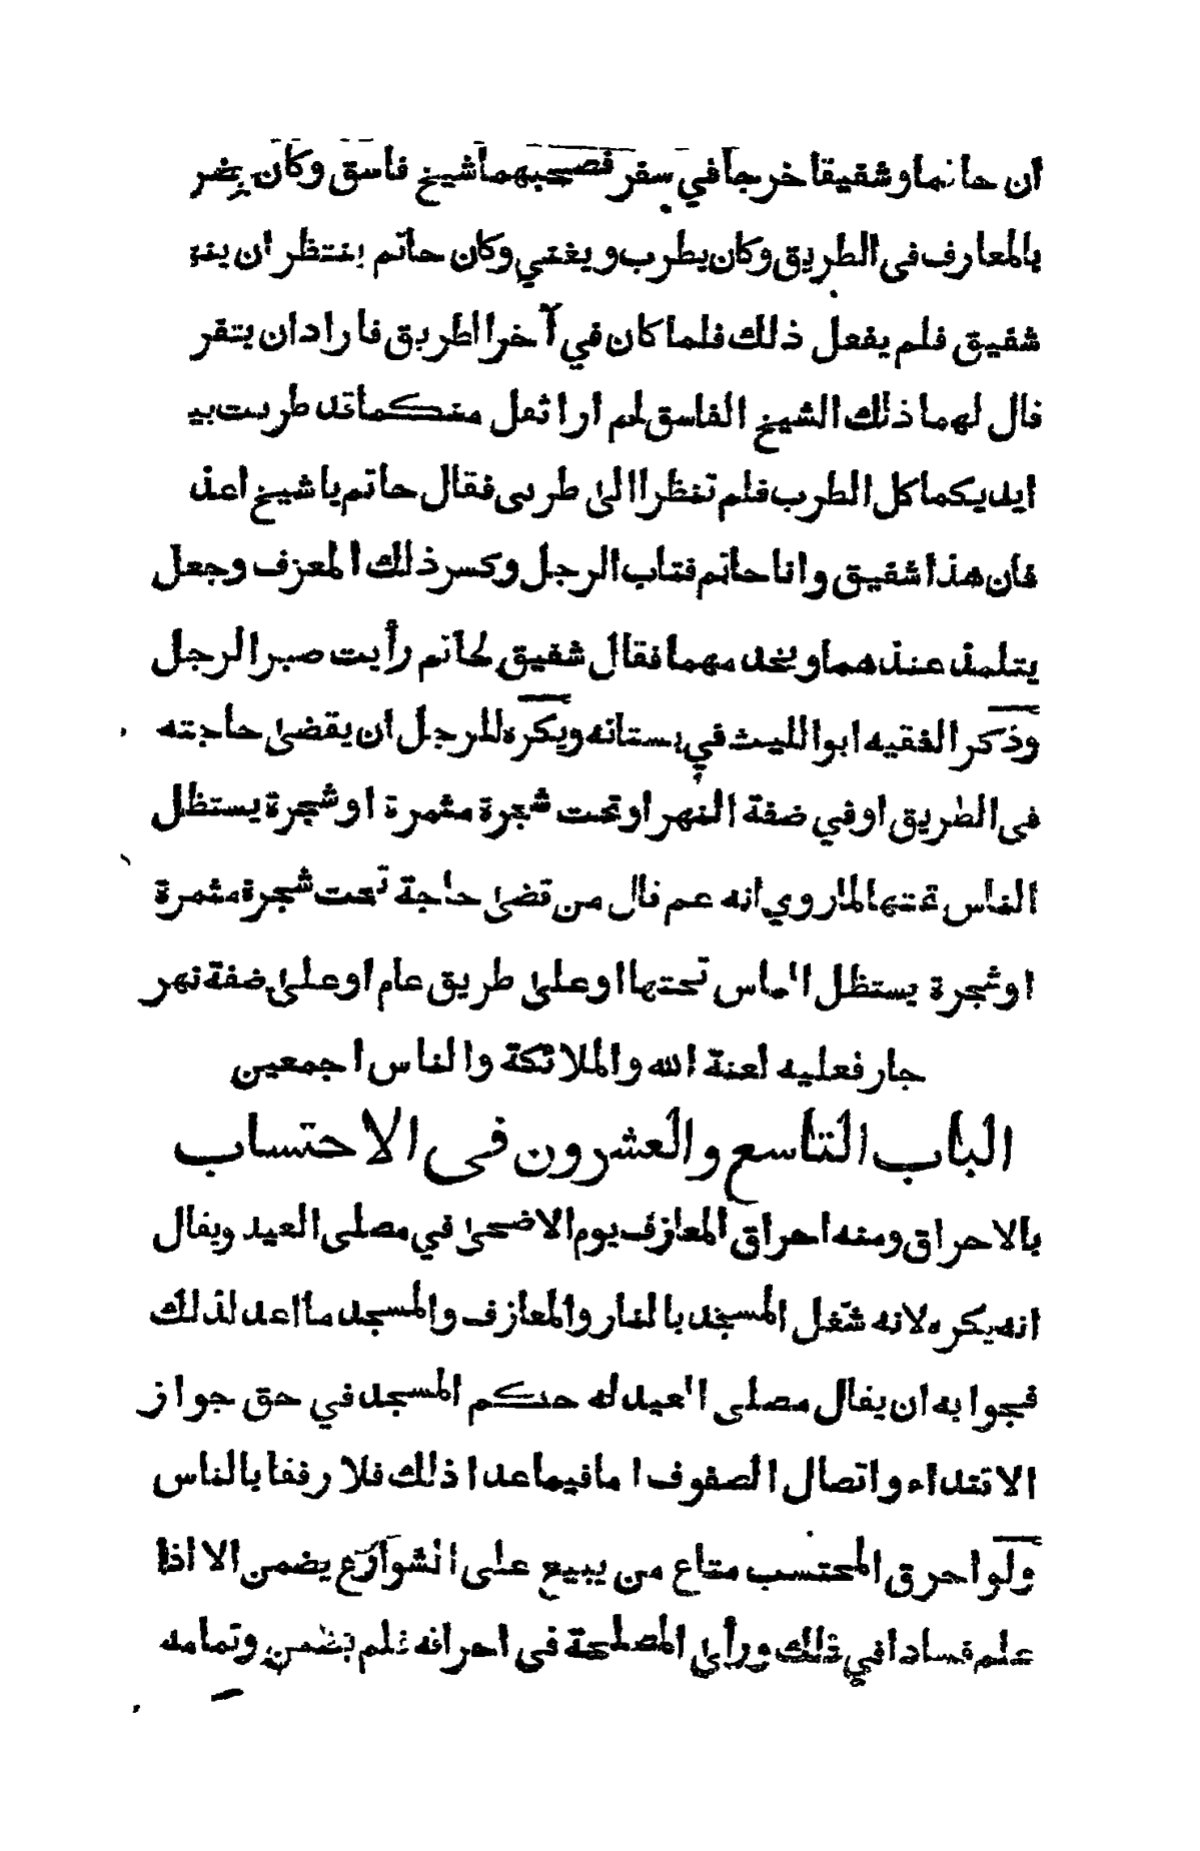 ان حاتما وشقيقا خرجا في سفر فصحبهما شيخ فاسق وكان يضر
بالمعارف فى الطريق وكان يطرب ويغني وكان حاتم ينتظر ان ينه
شقيق فلم يفعل ذلك فلما كان في آخر الطريق فاراد ان يتفر
قال لهما ذلك الشيخ الفاسق لم ار اثقل منكما قد طربت بي
ايديكما كل الطرب فلم تنظرا الى طربى فقال حاتم يا شيخ اعذ
فان هذا شقيق وانا حاتم فتاب الرجل وكسر ذلك المعزف وجعل
يتلمذ عندهما ويخدمهما فقال شقيق لحاتم رأيت صبر الرجل
وذكر الفقيه ابو الليث في بستانه ويكره للرجل ان يقضى حاجته
فى الطريق او في ضفة النهر او تحت شجرة مثمرة او شجرة يستظل
الناس تحتها لما روي انه عم قال من قضى حاجة تحت شجرة مثمرة
او شجرة يستظل الناس تحتها او على طريق عام او على ضفة نهر
جار فعليه لعنة الله والملائكة والناس اجمعين
الباب التاسع والعشرون فى الاحتساب
بالاحراق ومنه احراق المعازف يوم الاضحى في مصلى العيد ويقال
انه يكره لانه شغل المسجد بالنار والمعازف والمسجد ما اعد لذلك
فجوابه ان يقال مصلى العيد له حكم المسجد في حق جواز
الاقتداء واتصال الصفوف اما فيما عدا ذلك فلا رفقا بالناس
ولو احرق المحتسب متاع من يبيع على الشوارع يضمن الا اذا
علم فسادا في ذلك ورأى المصلحة فى احراقه فلم يضمن وتمامه